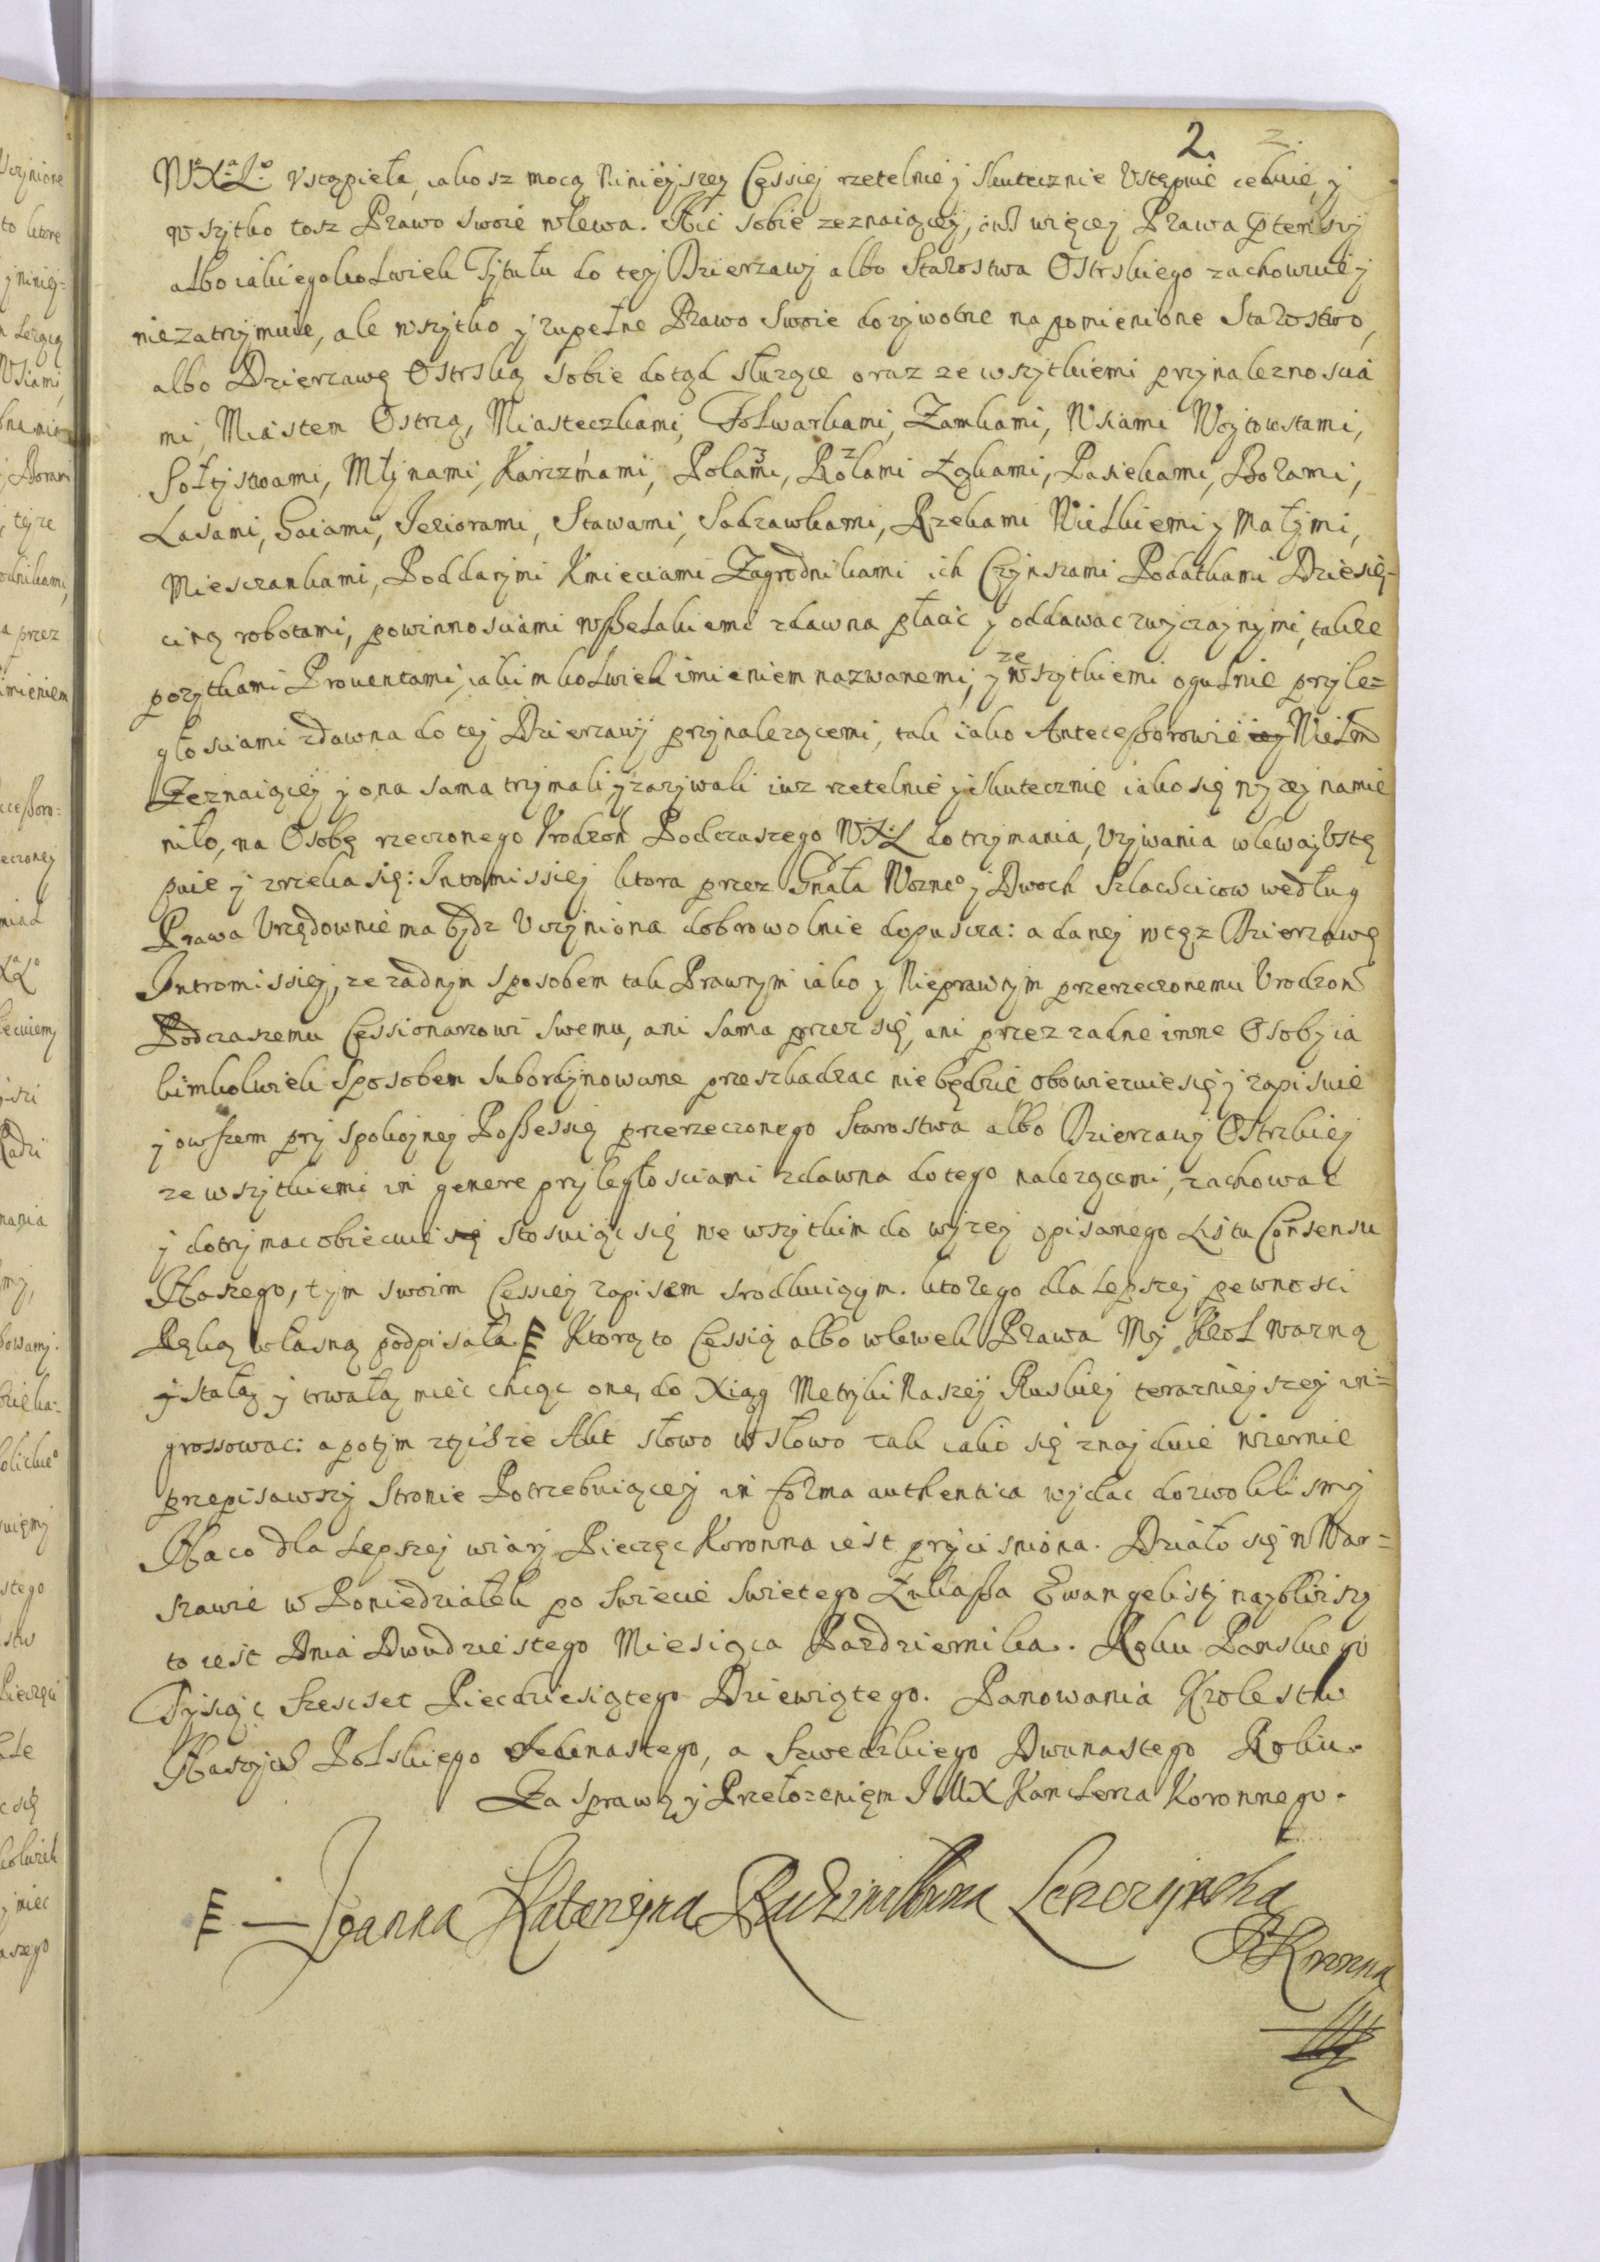 2. 2.
W.X.L. Vstąpieła, iakosz mocą Ninieyszey Cessiej rzetelnie y skutecznie Vstępuie ceduie y
wszytko tosz Prawo swoie wlewa. Nic sobie zeznaiącey, iusz więcej Prawa ptensij
albo iakiegokolwiek Tytułu do tey Dzierzawy albo Starostwa Ostrskiego zachowuie y
niezatrzymuie, ale wszytko y zupełne Prawo Swoie dozywotne na pomienione Starostwo,
albo Dzierzawę Ostrską sobie dotąd słuzące oraz ze wszytkiemi przynaleznoscia
mi, Miastem Ostrzą, Miasteczkami, Folwarkami, Zamkami, Wsiami Woytowstami,
Sołtystwami, Młynami, Karczmami, Polami, 3 Rolami 2 Łąkami, Pasiekami, Borami,
Lasami, Gaiami, Ieziorami, Stawami, Sadzawkami, Rzekami Wielkiemi y Małymi,
Miesczankami, Poddanymi Kmieciami Zagrodnikami ich Czynszami Podatkami Dziesię-
ciną robotami, powinnosciami wszelakiemi zdawna płacic y oddawac zwyczaynymi, takze
pozytkami Prouentami, iakimkolwiek imieniem nazwanemi, y ze wszytkiemi ogulnie przyle-
głosciami zdawna do tej Dzierzawy przynalezącemi, tak iako Antecessorowie iey Wielm
Zeznaiącej y ona sama trzymali y zazywali iuz rzetelnie y skutecznie iako się wyzey namie
niło, na Osobę rzeczonego Vrodzon Podczaszego W.X.L do trzymania, Vzywania wlewa y Vstę
puie y zrzeka się: Intromissiej ktora przez Gnała Wozneo y Dwoch Szlachcicow według
Prawa Vrzędownie ma bydz Vczyniona dobrowolnie dopuscza: a danej w tęz Dzierzawę
Intromissiej, ze zadnym sposobem tak Prawnym iako y Nieprawnym przerzeczonemu Vrodzon
Podczaszemu Cessionarzowi swemu, ani sama przez się, ani przez zadne inne Osoby ia
kimkolwiek Sposobem subordynowane przeszkadzac niebędzie obowiezuie się y zapisuie
y owszem przy spokoyney Possessiej przerzeczonego Starostwa albo Dzierzawy Ostrskiej
ze wszytkiemi in genere przyległosciami zdawna do tego nalezącemi, zachowac
y dotrzymac obiecuie się stosuiąc się we wszytkim do wyzey opisanego Listu Consensu
Naszego, tym swoim Cessiey zapisem srodkuiącym. ktorego dla lepszej pewnosci
Ręką własną podpisała Ktorą to Cessią albo wlewek Prawa My Krol wazną
y stałą y trwałą miec chcąc onę, do Xiąg Metryki Naszej Ruskiej terazniejszey in-
grossowac: a potym z tychze Akt słowo w słowo tak iako się znayduie wiernie
przepisawszy Stronie Potrzebuiącey in forma authentica wydac dozwolilismy
Na co dla lepszej wiary Pieczęc Koronna iest przycisniona. Działo się w War-
szawie w Poniedziałek po Swiecie Swietego Łukasza Ewangelisty nayblizszy
to iest Dnia Dwudziestego Miesiąca Pazdziernika. Roku Panskiego
Tysiąc Szescset Piecdziesiątego Dziewiątego. Panowania Krolestw
Naszych Polskiego Iedenastego, a Szwedzkiego Dwunastego Roku.
Za sprawą y Przełozenięm I M X Kanclerza Koronnego.
Ioanna Katarzyna Radziwiłowna Lesczynska
P. Koronna